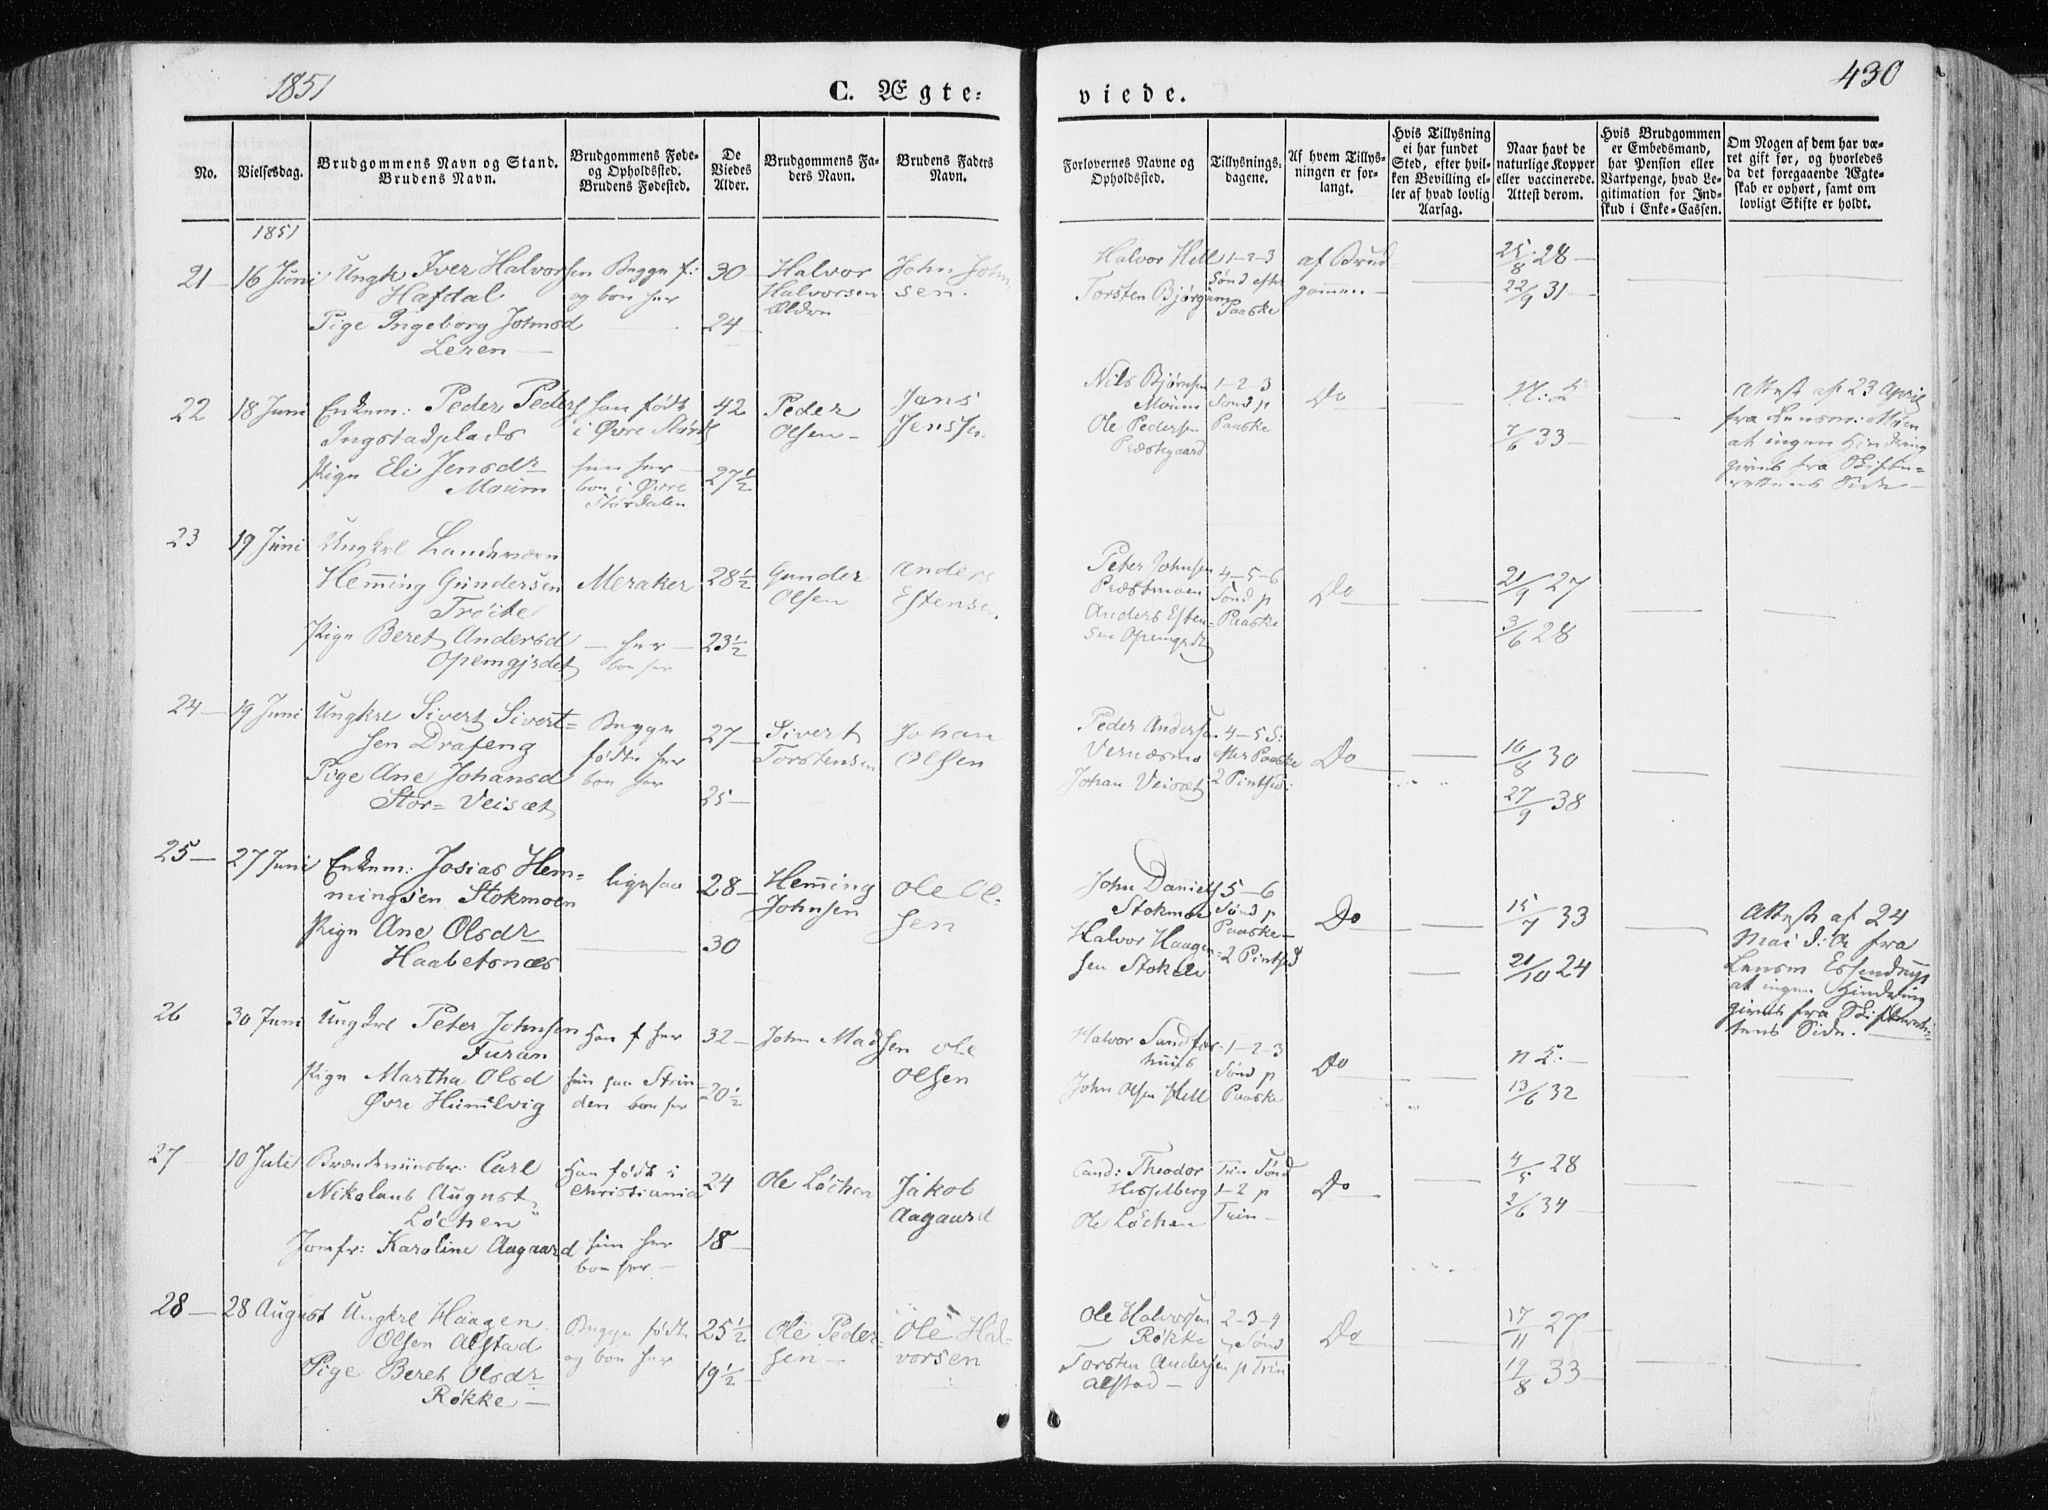 1851
C. Ægte-
viede.
430
No.
Vielsesdag.
Brudgommens Navn og Stand.
Brudens Navn.
Brudgommens Føde-
og Opholdssted.
Brudens Fødested.
De
Viedes
Alder.
Brudgommens Fa-
ders Navn.
Brudens Faders
Navn.
Forlovernes Navne og
Opholdssted.
Tillysnings-
dagene.
Af hvem Tillys-
ningen er for-
langt.
Hvis Tillysning
ei har fundet
Sted, efter hvil-
ken Bevilling el-
ler af hvad lovlig
Aarsag.
Naar havt de
naturlige Kopper
eller vaccinerede.
Attest derom.
Hvis Brudgommen
er Embedsmand,
har Pension eller
Vartpenge, hvad Le-
gitimation for Ind-
skud i Enke-Cassen.
Om Nogen af dem har væ-
ret gift før, og hvorledes
da det foregaaende Ægte-
skab er ophørt, samt om
lovligt Skifte er holdt.
1851
21 16 Juni
Ungk Iver Halvorsen
Hafdal
Pige Ingeborg Johnsd
Leren
Begge f:
og boe her
30
24
Halvor
Halvorsen
Ældre
John John-
sen.
Halvor Hell
Torsten Bjørgum
1-2-3
Sønd efter
Paaske
af Brud
gommen
25/8 28
22/9 31
22 18 Juni
Enkem: Peder Peders
Ingstadplads
Pige Eli Jensdr
Moum
han født
i Øvre Størd
hun her
boe i Øvre
Størdalen
42
27½
Peder
Olsen
Jens
Jenssen
Nils Bjørnsen
Moum
Ole Pedersen
Præstegaard
1-2-3
Sønd p
Paaske
Do
7/6 33
Attest af 23 April
fra Lensm: Moen
at ingen Hindring
gives fra Skifte-
rettens Side
23 19 Juni
Ungkrl Landeværn
Hemming Gundersen
Trøite
Pige Beret Andersd
Opemgjerdet
Meraker
her
boe her
28½
23½
Gunder
Olsen
Anders
Estensen.
Peter Johnsen
Præstmoen
Anders Esten-
sen Opemgjrdt
4-5-6
Sønd p
Paaske
Do
21/9 27
3/6 28
24 19 Juni
Ungkrl Sivert Sivert-
sen Drafeng
Pige Ane Johansd
Stor-Veisæt
Begge
fødte her
boe her
27
25
Sivert
Torstensen
Johan
Olsen
Peder Andersen
Vernæsmo
Johan Veisæt
4-5 S:
efter Paaske
2 Pintsed:
Do
16/8 30
27/9 38
25 27 Juni
Enkem: Josias Hem-
mingsen Stokmoen
Pige Ane Olsdr
Haabetsnæs
ligesaa
28
30
Hemming
Johnsen
Ole Ol-
sen
John Daniels
Stokmoe
Halvor Haagen-
sen Stokke
5-6
Sønd p
Paaske
2 Pintsed
Do
15/7 33
21/10 24
Attest af 24
Mai d: A fra
Lensm Essendrop
at ingen Hindring
gives fra Skifteret-
tens Side.
26 30 Juni
Ungkrl Peter Johnsen
Furan
Pige Martha Olsd
Øvre Hummelvig
Han f her
hun paa Strin
den boe her
32
20½
John Madsen
Ole
Olsen
Halvor Sandfær-
huus
John Olsen Hell
1-2-3
Sønd p
Paaske
Do
13/6 32
27 10 Juli
Brændeviinsbr: Carl
Nikolaus August
Løchen
Jomfr: Karoline Aagaard
Han født i
Christiania
hun her
boe her
24
18
Ole Løchen
Jakob
Aagaard
Cand: Theodor
Hesselberg
Ole Løchen
Trin Sønd
1-2 p
Trin
Do
4/5 28
2/6 34
28 28 August
Ungkrl Haagen
Olsen Alstad
Pige Beret Olsdr
Røkke
Begge født
og boe her
25½
19½
Ole Peder-
sen
Ole Hal-
vorsen
Ole Halvorsen
Røkke
Torsten Andersen
Alstad
2-3-4
Sønd
p Trin
Do
17/11 27
19/8 33